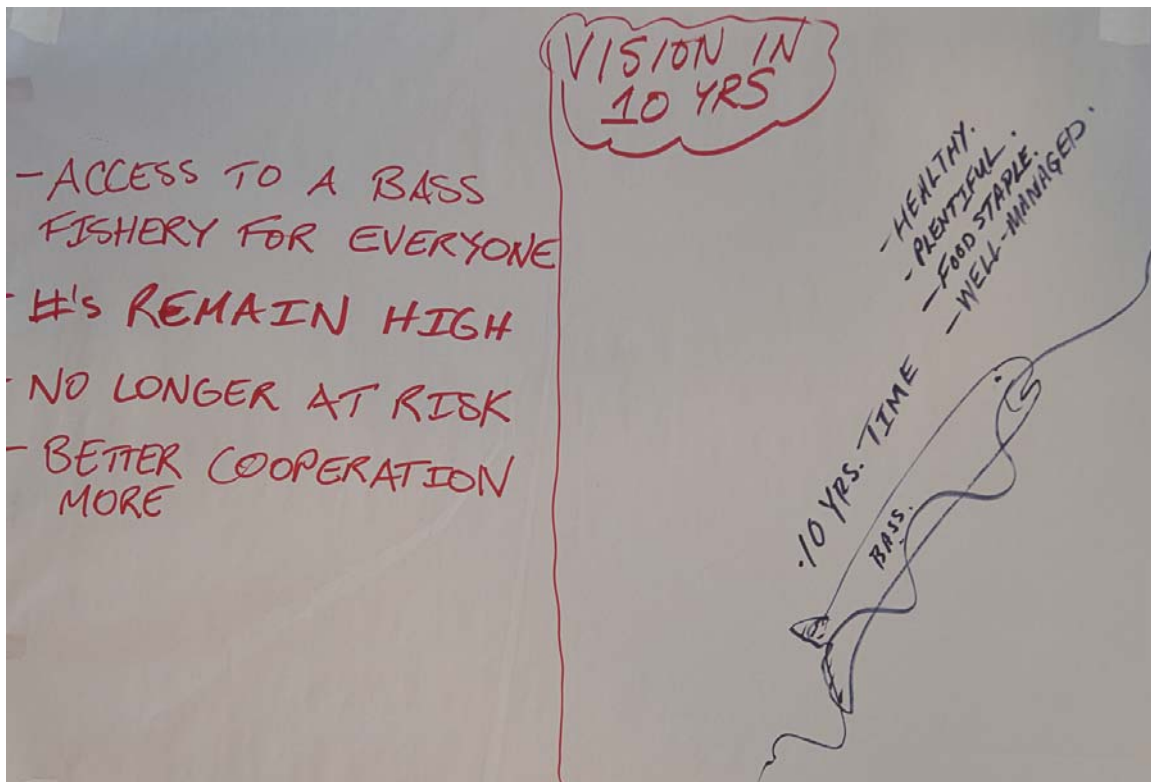 VISION IN
10 YRS
- ACCESS TO A BASS
FISHERY FOR EVERYONE
- #'s REMAIN HIGH
- NO LONGER AT RISK
- BETTER COOPERATION
MORE
- HEALTHY.
- PLENTIFUL.
- FOOD STAPLE.
- WELL-MANAGED.
.10 YRS. TIME
BASS.